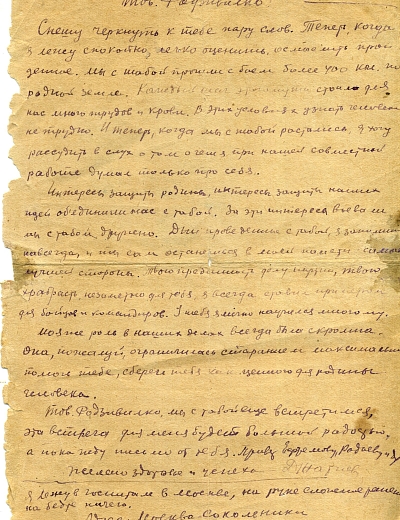 Тов. Радзивилко
Спешу черкнуть к тебе пару слов. Тепер, когда
я лежу спокойно, легко оценить, осмыслить прой
денное. Мы с тобой прошли с боем более 400 км. по
родной земле. Каждый шаг стоило для
нас много трудов и крови. В этих условиях узнать человека
не трудно. И тепер, когда мы с тобой расстались, я хочу
рассудить в слух о том о чем я при нашей совместной
работе думал только про себя.
Интересы защиты родины, интересы защиты наших
идей объединили нас с тобой. За эти интересы воевали
мы с тобой дружно. Дни проведенные с тобой, я запомню
навсегда, и ты сам останешься в моей памяти самой
лучшей стороны. Твою преданность делу партии, твою
храбрость, незаметно для тебя, я всегда ставил примером
для бойцов и командиров. У тебя я лично научился многому.
Моя же роль в наших делах всегда была скромна.
Она, пожалуй, ограничилась старанием максимально
помочь тебе, сберечь тебя как ценного для родины
человека.
Тов. Радзивилко, мы с тобой еще встретимся,
эта встреча для меня будет большой радостью,
а пока жду писем от тебя. Привет
Желаю здоровья и успеха
Я лежу в госпитале в Москве, на руке сложное ранение
на бедре ничего.
Москва Сокольники